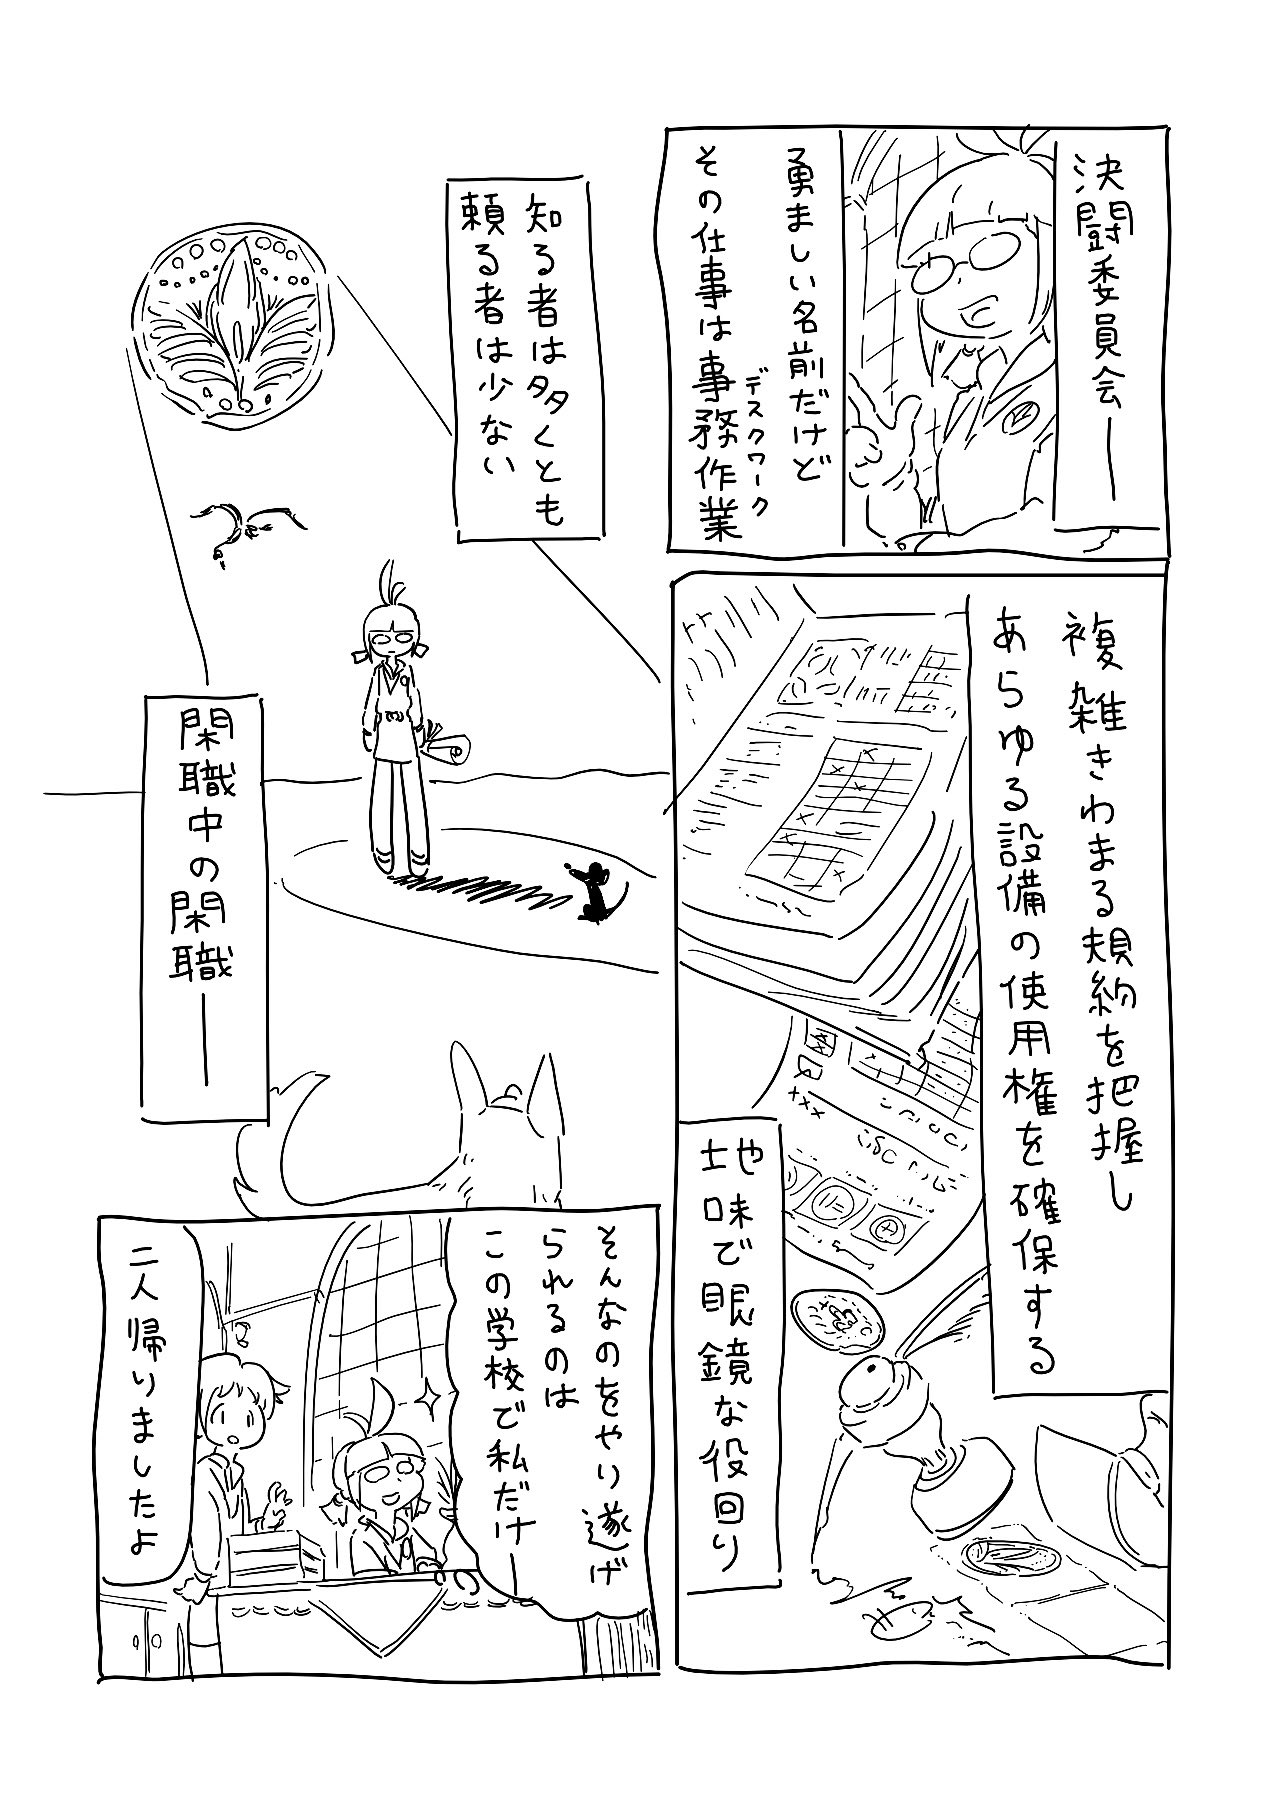 決闘委員会――
勇ましい名前だけど
その仕事は事務作業
デスクワーク
複雑きわまる規約を把握し
あらゆる設備の使用権を確保する
地味で眼鏡な役回り
知る者は多くとも
頼る者は少ない
閑職中の閑職――
そんなのをやり遂げ
られるのは
この学校で私だけ―
二人帰りましたよ